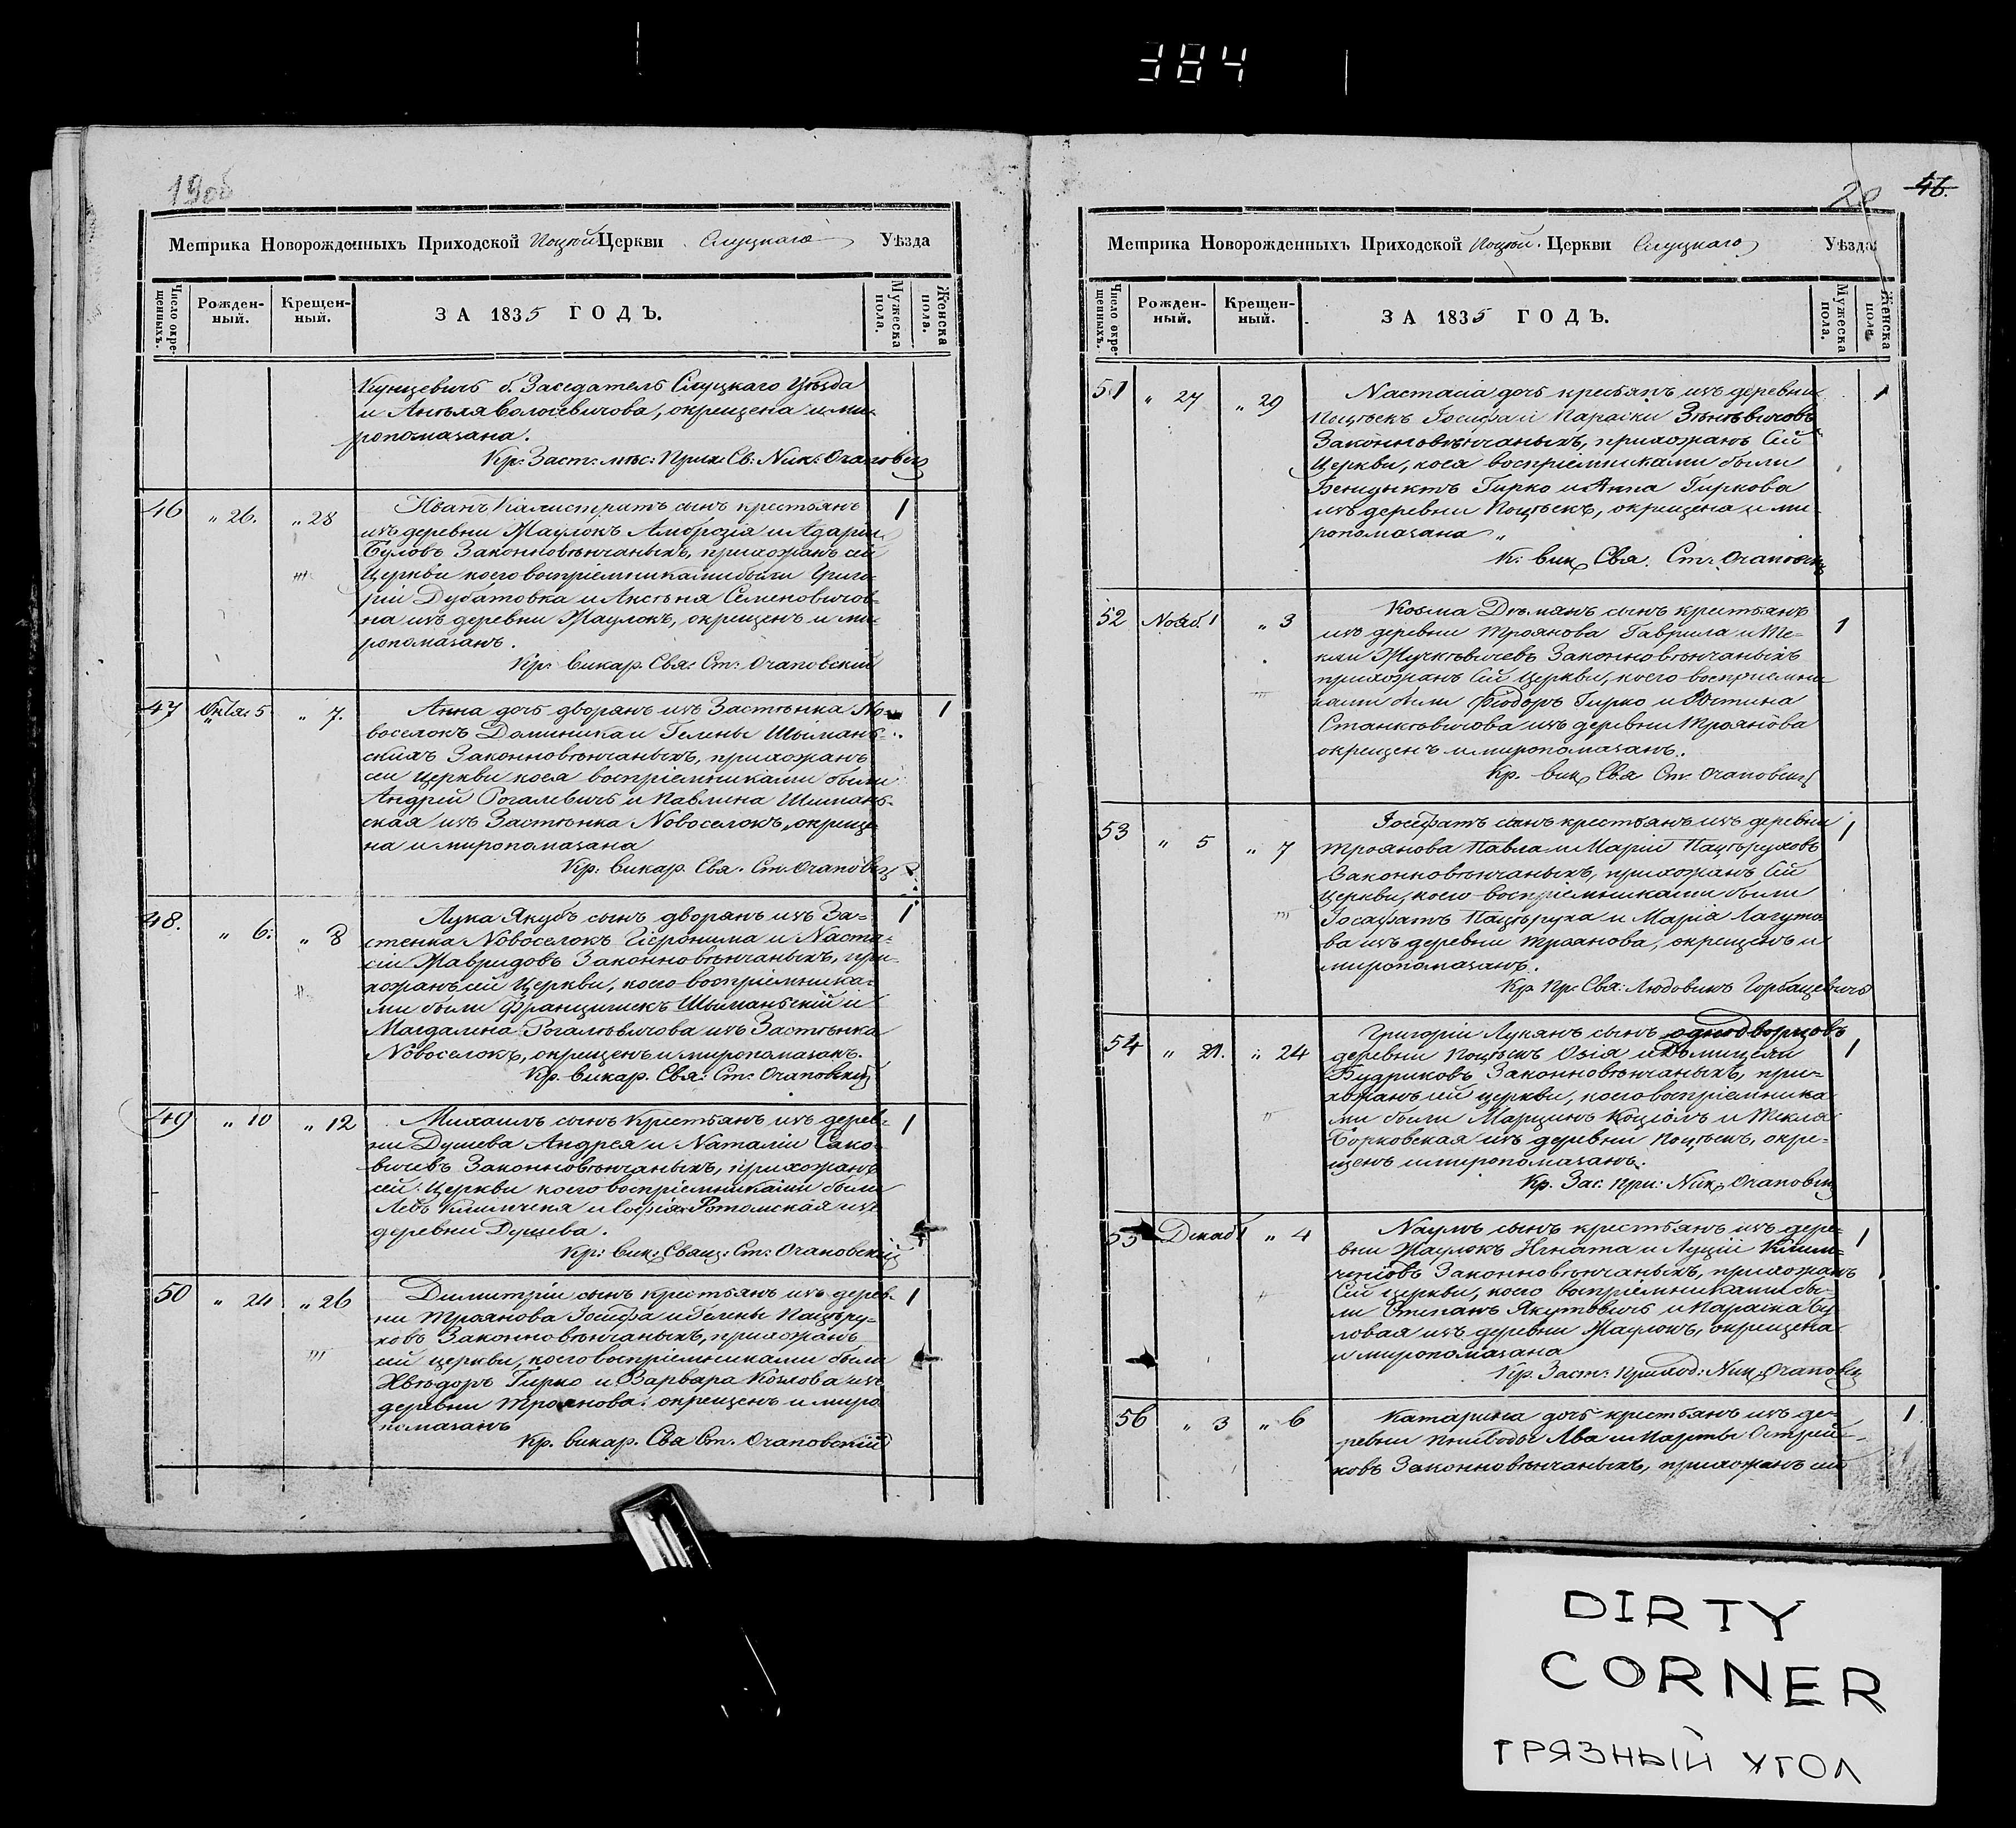 384
19об
Метрика Новорожденныхъ Приходской Поцѣкой Церкви Слуцкаго Уѣзда
Число окрещенныхъ. Рожденный. Крещенный. ЗА 1835 ГОДЪ. Мужеска пола. Женска пола.
Кунцевичъ б. Заседатель Слуцкаго Уѣзда
и Ангѣля Волосевичова, окрещена и ми-
ропомазана.
Кр: Заст: мѣс: Прих: Св: Ник: Очаповск
46 „ 26. „ 28 Иванъ Калистратъ сынъ крестьянъ 1
изъ деревни Жаулокъ Амброзія и Адаріи
Буловъ Законновѣнчаныхъ, прихожанъ сей
Церкви коего воспріемниками были Григо-
рій Дубатовка и Аксѣня Семеновичов-
на изъ деревни Жаулокъ, окрещенъ и ми-
ропомазанъ.
Кр: викар. Свя: Ст: Очаповскій
47 Октя: 5 „ 7. Анна дочь дворянъ изъ Застѣнка Но- 1
воселокъ Доминика и Гелены Шыманъ-
скихъ Законновѣнчаныхъ, прихожанъ
сей Церкви коея воспріемниками были
Андрей Рогалевичъ и Павлина Шиманъ-
ская изъ Застѣнка Новоселокъ, окреще-
на и миропомазана
Кр: викар. Свя. Ст: Очаповск
48. „ 6: „ 8 Лука Якубъ сынъ дворянъ изъ За- 1
стенка Новоселокъ Гіеронима и Наста-
сіи Жавридовъ Законновѣнчаныхъ, при-
хожанъ сей Церкви, коего воспріемника-
ми были Францишекъ Шыманьскій и
Магдалина Рогалѣвичова изъ Застѣнка
Новоселокъ, окрещенъ и миропомазанъ.
Кр. викар. Свя: Ст: Очаповскій
49 „ 10 „ 12 Михаилъ сынъ Крестьянъ изъ дерев- 1
ни Душева Андрея и Наталіи Сако-
вичевъ Законновѣнчаныхъ, прихожанъ
сей Церкви коего воспріемниками были
Левъ Климченя и Софія Ротомская изъ
деревни Душева.
Кр: вик: Свящ: Ст: Очаповскій
50 „ 24 „ 26 Димитрій сынъ крестьянъ изъ дерев- 1
ни Троянова Іосифа и Гелены Пацѣру-
ховъ Законновѣнчаныхъ, прихожанъ
сей церкви, коего воспріемниками были
Хвѣдоръ Гирко и Варвара Козлова изъ
деревни Троянова. окрещенъ и миро
помазанъ
Кр. викар. Свя Ст. Очаповскій
20 46.
Метрика Новорожденныхъ Приходской Поцѣкой Церкви Слуцкаго Уѣзда
Число окрещенныхъ. Рожденный. Крещенный. ЗА 1835 ГОДЪ. Мужеска пола. Женска пола.
51 „ 27 „ 29 Настасіа дочь крестьянъ изъ деревни 1
Поцѣекъ Іосифа и Параски Зѣнѣвичовъ
Законновѣнчаныхъ, прихожанъ Сей
Церкви, коея воспріемниками были
Бенидыктъ Гирко и Анна Гиркова
изъ деревни Поцѣекъ, окрещена и ми
ропомазана „
К: вик Свя. Ст: Очаповск
52 Нояб 1 „ 3 Козма Дѣмянъ сынъ крестьянъ 1
изъ деревни Троянова Гаврила и Те-
кли Жучкѣвичевъ Законновѣнчаныхъ
прихожанъ Сей Церкви, коего воспріемни
ками были Фіодоръ Гирко и Юстина
Станкѣвичова изъ деревни Троянова
окрещенъ и миропомазанъ.
Кр. вик Свя Ст. Очаповск
53 „ 5 „ 7 Іосифатъ сынъ крестьянъ изъ деревни 1
Троянова Павла и Маріи Пацѣруховъ
Законновѣнчаныхъ, прихожанъ Сей
Церкви, коего воспріемниками были
Іосафатъ Пацѣруха и Маріа Лагуто
ва изъ деревни Троанова, окрещенъ и
миропомазанъ.
Кр. Пр: Свя: Людовикъ Горбацевичъ
54 „ 21. „ 24 Григорій Лукянъ сынъ однодворцовъ 1
деревни Поцѣекъ Озія и Домицели
Будриковъ Законновѣнчаныхъ, при-
хожанъ сей церкви, коего воспріемника
ми были Марцинъ Коціолъ и Текля
Борковская изъ деревни Поцѣекъ, окре-
щенъ и миропомазанъ.
Кр. Зас: при: Ник Очаповск
55 Декаб 1 „ 4 Наумъ сынъ крестьянъ изъ дере- 1
вни Жаулокъ Игната и Луціи Клим-
чениовъ Законновѣнчаныхъ, прихожанъ
Сей Церкви, коего воспріемниками бы-
ли Степанъ Якутовичъ и Параска Бу
ловая изъ деревни Жаулокъ, окрещена
и миропомазана
Кр. Заст: приход: Ник Очаповск
56 „ 3 „ 6 Катарина дочь крестьянъ изъ де- 1
ревни Лва и Марты Острей-
ковъ Законновѣнчаныхъ, прихожанъ сей
DIRTY
CORNER
ГРЯЗНЫЙ УГОЛ